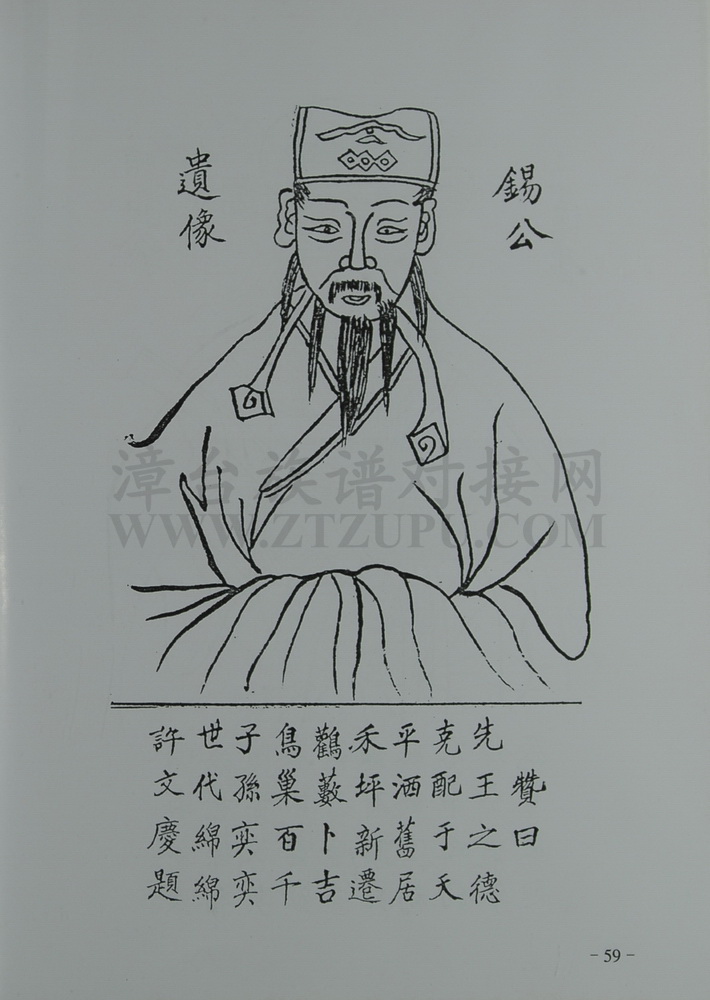 錫公
遺像
漳台族谱对接网
WWW.ZTZUPU.COM
贊曰
先王之德
克配于天
平洒舊居
禾坪新遷
鸛藪卜吉
鳥巢百千
子孫奕奕
世代綿綿
許文慶題
- 59 -